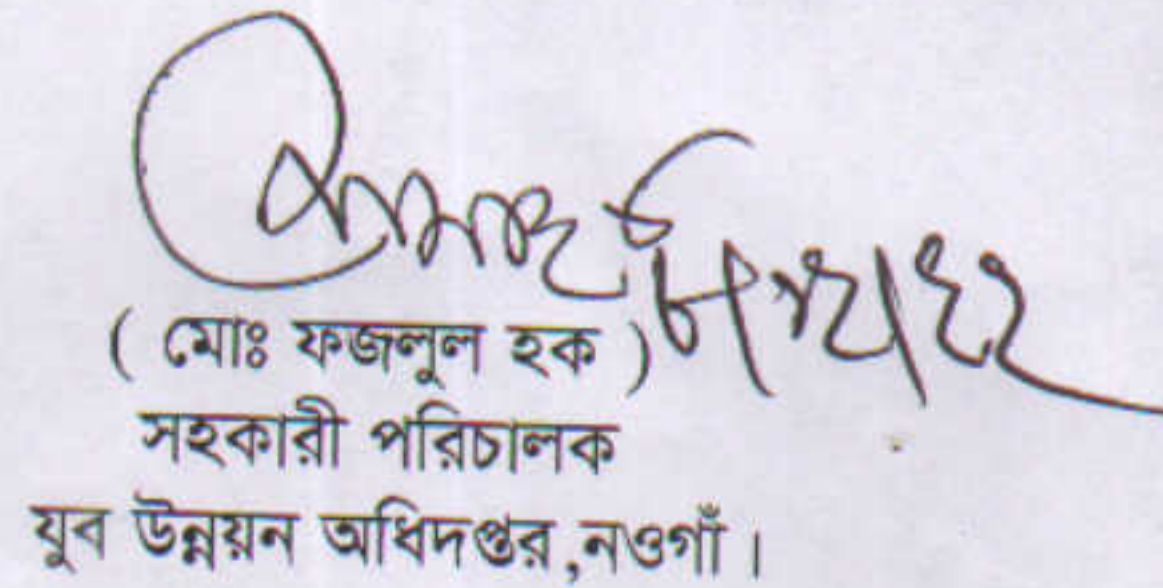 ( মোঃ ফজলুল হক )
সহকারী পরিচালক
যুব উন্নয়ন অধিদপ্তর,নওগাঁ।